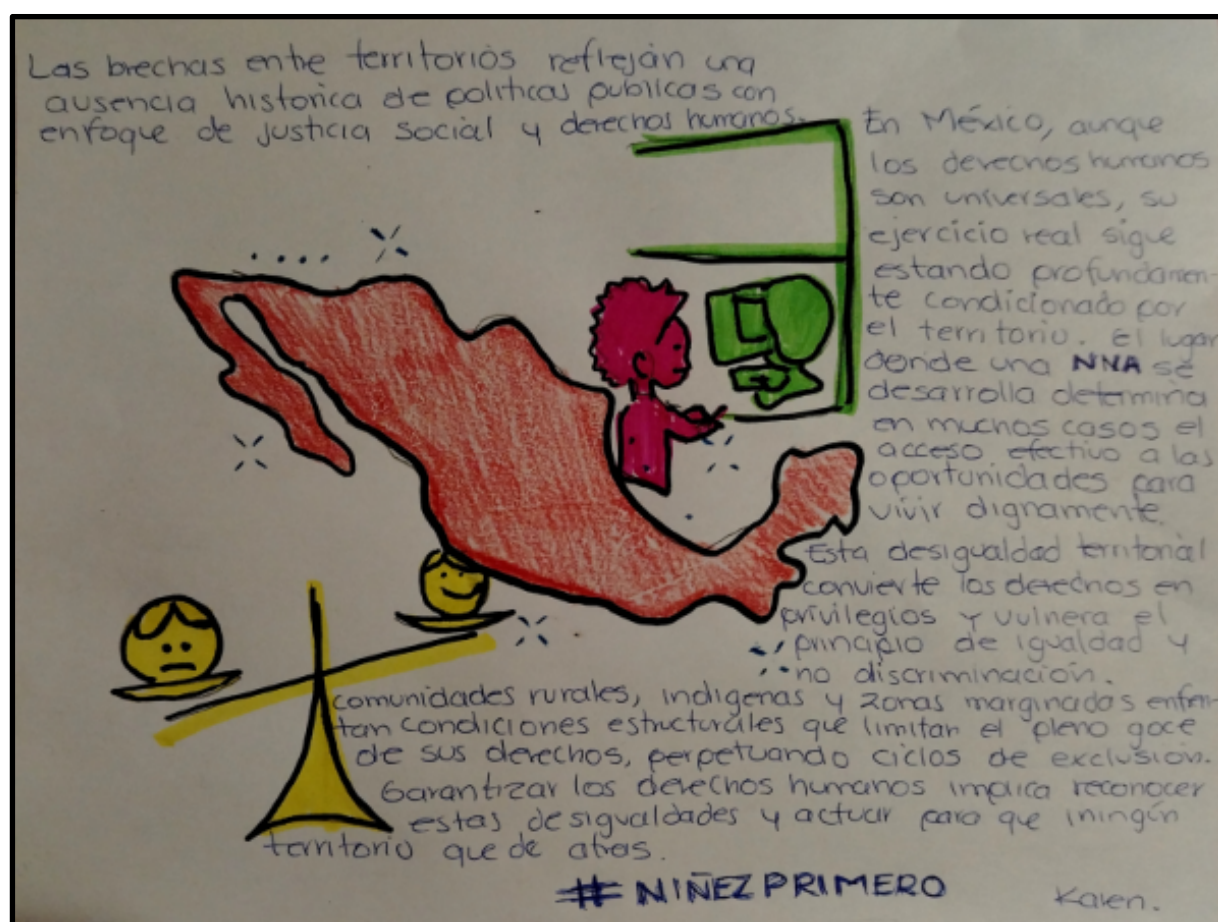 Las brechas entre territorios reflejan una
ausencia historica de politicas publicas con
enfoque de justicia social y derechos humanos.
En México, aunque
los derechos humanos
son universales, su
ejercicio real sigue
estando profundamen-
te condicionado por
el territorio. El lugar
donde una NNA se
desarrolla determina
en muchos casos el
acceso efectivo a las
oportunidades para
vivir dignamente.
Esta desigualdad territorial
convierte los derechos en
privilegios y vulnera el
principio de igualdad y
no discriminación.
comunidades rurales, indigenas y zonas marginadas enfren-
tan condiciones estructurales que limitan el pleno goce
de sus derechos, perpetuando ciclos de exclusión.
Garantizar los derechos humanos implica reconocer
estas desigualdades y actuar para que iningún
territorio que de atras.
# NIÑEZ PRIMERO
Karen.